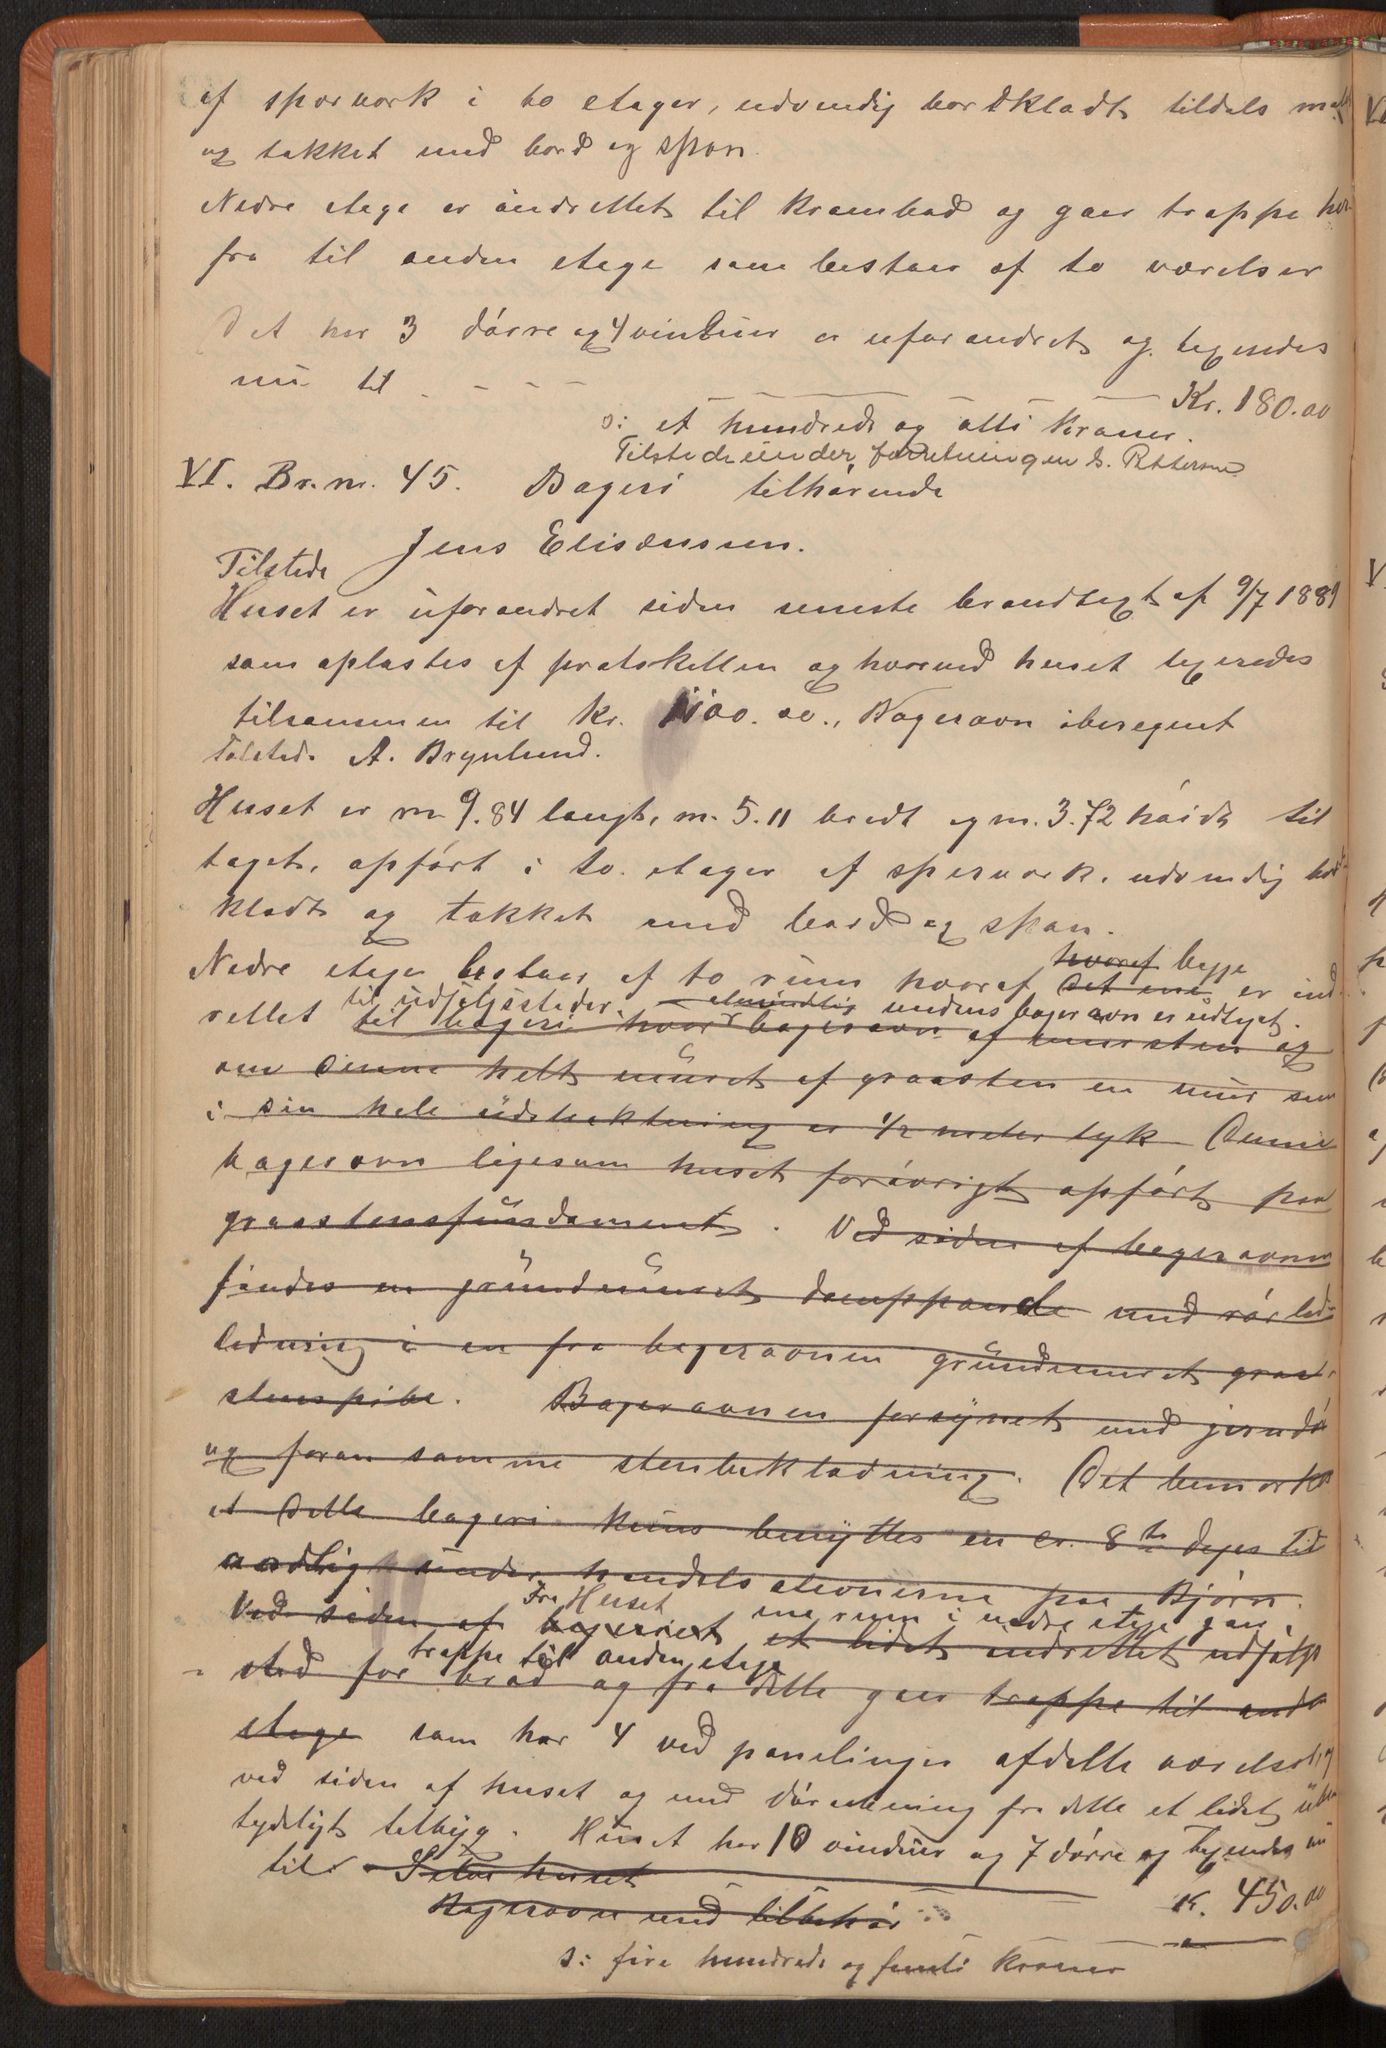 af sperverk i to etager, udvendig bordklædt tildels malt
og tækket med bord og spon.
Nedre etage er indrettet til krambod og gaar trappe her-
fra til anden etage som bestaar af to værelser
Det har 3 dörre og 4 vinduer er uforandret og taxeredes
nu til - - - Kr. 180.00
ɔ: et hundrede og otti kroner.
Tilstede under forretningen S. Pettersen
VI. Br. nr. 45. Bageri tilhörende
Jens Elisæussen.
Tilstede
Huset er uforandret siden seneste brandtaxt af 9/7 1889
som oplæstes af protokollen og hvorved huset taxeredes
tilsammen til kr. 1100.00., Bagerovn iberegnet
Tilstede A. Brynlund.
Huset er m 9.84 langt, m. 5.11 bredt og m. 3.72 höidt til
taget, opfört i to etager af sperverk, udvendig bord-
klædt og tækket med bord og spon.
hvoraf begge
Nedre etage bestaar af to rum hvoraf det ene er ind-
til udsalgssteder, almindelig medens bagerovn er udtaget.
rettet til bageri hvor bagerovn af mursten og
om denne helt muret af graasten en mur som
i sin hele udstrektning er 1/2 meter tyk Denne
bagerovn ligesom huset forövrigt opfört paa
graastensfundament. Ved siden af bagerovnen
findes en grundmuret damppande med rörled-
ledning i en fra bagerovnen grundmuret graa-
stenspibe. Bagerovnen forsynet med jerndör
og foran samme stenbeklædning. Det bemærkes
at dette bageri kuns benyttes en cr. 8te dages tid
aarlig under handelsstevnerne paa Björn.
Fra Huset ene rum i nedre etage gaar
Ved siden af bageriet et lidet indrettet udsalgs
trappe til anden etage
sted for bröd og fra dette gaar trappe til anden
etage som har 4 ved panelinger afdelte værelser, og
ved siden af huset og med döraabning fra dette et lidet ube-
tydeligt tilbyg. Huset har 10 vinduer og 7 dörre og taxeredes nu
til Selve huset K. 450.00
Bagerovn med tilbehör
ɔ: fire hundrede og femti kroner